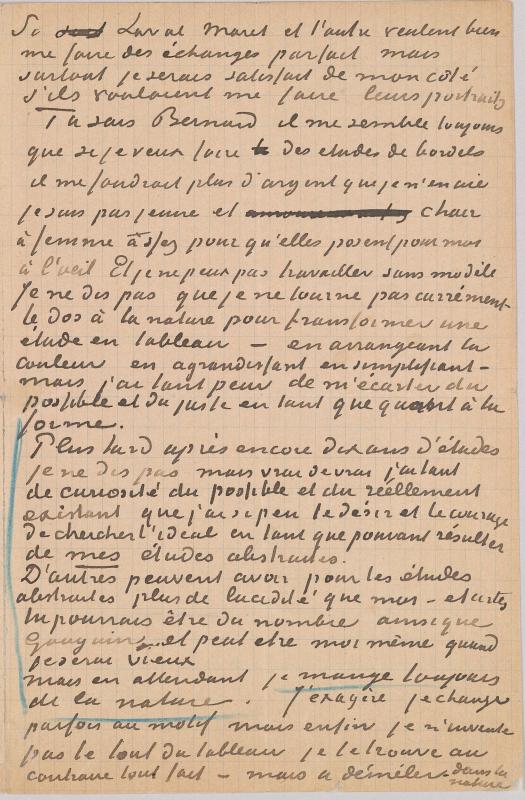 Si Laval Moret et l'autre veulent bien
me faire des échanges parfait mais
surtout je serais satisfait de mon coté
s'ils voulaient me faire leurs portraits
Tu sais Bernard il me semble toujours
que si je veux faire des etudes de bordels
il me faudrait plus d'argent que je n'en aie
je suis pas jeune et chair
à femme assez pour qu'elles posent pour moi
à l'oeil Et je ne peux pas travailler sans modèle
Je ne dis pas que je ne tourne pas carrément
le dos à la nature pour transformer une
étude en tableau – en arrangeant la
couleur en agrandissant en simplifiant –
mais j'ai tant peur de m'écarter du
possible et du juste en tant que quant à la
forme.
Plus tard après encore dix ans d'études
je ne dis pas mais vrai de vrai j'ai tant
de curiosité du possible et du réellement
existant que j'ai si peu le désir et le courage
de chercher l'ideal en tant que pouvant résulter
de mes études abstraites.
D'autres peuvent avoir pour les études
abstraites plus de lucidité que moi – et certes
tu pourrais être du nombre ainsi que
Gauguin et peut etre moi même quand
je serai vieux
mais en attendant je mange toujours
de la nature. J'exagère je change
parfois au motif mais enfin je n'invente
pas le tout du tableau je le trouve au
contraire tout fait – mais à démêler dans la
nature